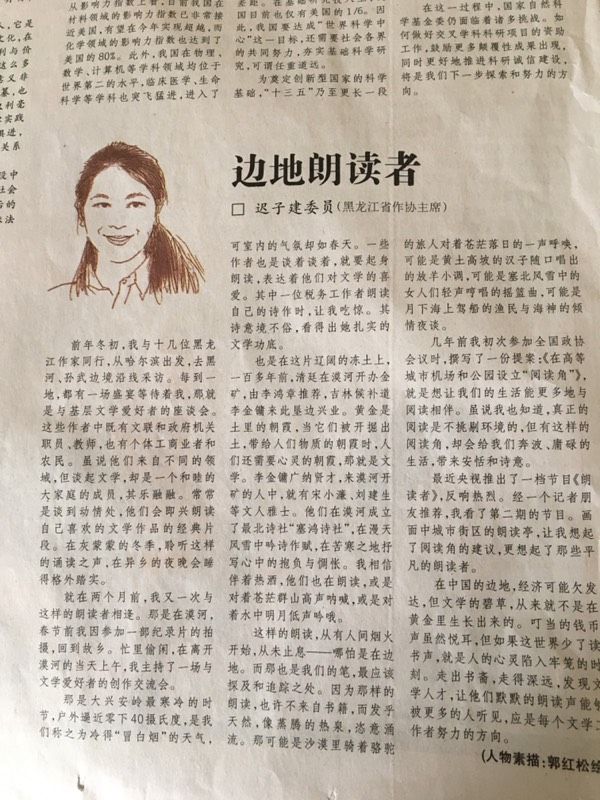 从影响力指数上看,目前我国在
材料领域的影响力指数已非常接
近美国,有望在今年实现超越,而
化学领域的影响力指数也达到了
美国的80%。此外,我国在物理、
数学、计算机等学科领域均位于
世界第二的水平,临床医学、生命
科学等学科也突飞猛进,进入了
国目前也仅有美国的1/6。因
此,我国要达成“世界科学中
心”这一目标,还需要社会各界
的共同努力,夯实基础科学研
究,可谓任重道远。
为奠定创新型国家的科学
基础,“十三五”乃至更长一段
在这一过程中,国家自然科
学基金委仍面临着诸多挑战。如
何做好交叉学科科研项目的资助
工作,鼓励更多颠覆性成果出现,
同时更好地推进科研诚信建设,
将是我们下一步探索和努力的方
向。
边地朗读者
□ 迟子建委员(黑龙江省作协主席)
前年冬初,我与十几位黑龙
江作家同行,从哈尔滨出发,去黑
河、孙武边境沿线采访。每到一
地,都有一场盛宴等待着我,那就
是与基层文学爱好者的座谈会。
这些作者中既有文联和政府机关
职员、教师,也有个体工商业者和
农民。虽说他们来自不同的领
域,但谈起文学,却是一个和睦的
大家庭的成员,其乐融融。常常
是谈到动情处,他们会即兴朗读
自己喜欢的文学作品的经典片
段。在灰蒙蒙的冬季,聆听这样
的诵读之声,在异乡的夜晚会睡
得格外踏实。
就在两个月前,我又一次与
这样的朗读者相逢。那是在漠河,
春节前我因参加一部纪录片的拍
摄,回到故乡。忙里偷闲,在离开
漠河的当天上午,我主持了一场与
文学爱好者的创作交流会。
那是大兴安岭最寒冷的时
节,户外逼近零下40摄氏度,是我
们称之为冷得“冒白烟”的天气,
可室内的气氛却如春天。一些
作者也是谈着谈着,就要起身
朗读,表达着他们对文学的喜
爱。其中一位税务工作者朗读
自己的诗作时,让我吃惊。其
诗意境不俗,看得出她扎实的
文学功底。
也是在这片辽阔的冻土上,
一百多年前,清廷在漠河开办金
矿,由李鸿章推荐,吉林候补道
李金镛来此垦边兴业。黄金是
土里的朝霞,当它们被开掘出
土,带给人们物质的朝霞时,人
们还需要心灵的朝霞,那就是文
学。李金镛广的贤才,来漠河开
矿的人中,就有宋小濂、刘建生
等文人雅士。他们在漠河成立
了最北诗社“塞鸿诗社”,在漫天
风雪中吟诗作赋,在苦寒之地抒
写心中的抱负与惆怅。我相信
伴着热酒,他们也在朗读,或是
对着苍茫群山高声呐喊,或是对
着水中明月低声吟哦。
这样的朗读,从有人间烟火
开始,从未止息——哪怕是在边
地。而那也是我们的笔,最应该
探及和追踪之处。因为那样的
朗读,也许不来自书籍,而发乎
天然,像蒸腾的热泉,恣意涌
流。那可能是沙漠里骑着骆驼
的旅人对着苍茫落日的一声呼唤,
可能是黄土高坡的汉子随口唱出
的放羊小调,可能是塞北风雪中的
女人们轻声哼唱的摇篮曲,可能是
月下海上驾船的渔民与海神的倾
情夜谈。
几年前我初次参加全国政协
会议时,撰写了一份提案:《在高等
城市机场和公园设立“阅读角”》,
就是想让我们的生活能更多地与
阅读相伴。虽说我也知道,真正的
阅读是不挑剔环境的,但有这样的
阅读角,却会给我们奔波、庸碌的
生活,带来安恬和诗意。
最近央视推出了一档节目《朗
读者》,反响热烈。经一个记者朋
友推荐,我看了第二期的节目。画
面中城市街区的朗读亭,让我想起
了阅读角的建议,更想起了那些平
凡的朗读者。
在中国的边地,经济可能欠发
达,但文学的碧草,从来就不是在
黄金里生长出来的。叮当的钱币
声虽然悦耳,但如果这世界少了读
书声,就是人的心灵陷入牢笼的时
刻。走出书斋,走得深远,发现文
学人才,让他们默默的朗读声能够
被更多的人听见,应是每个文学工
作者努力的方向。
(人物素描:郭红松绘